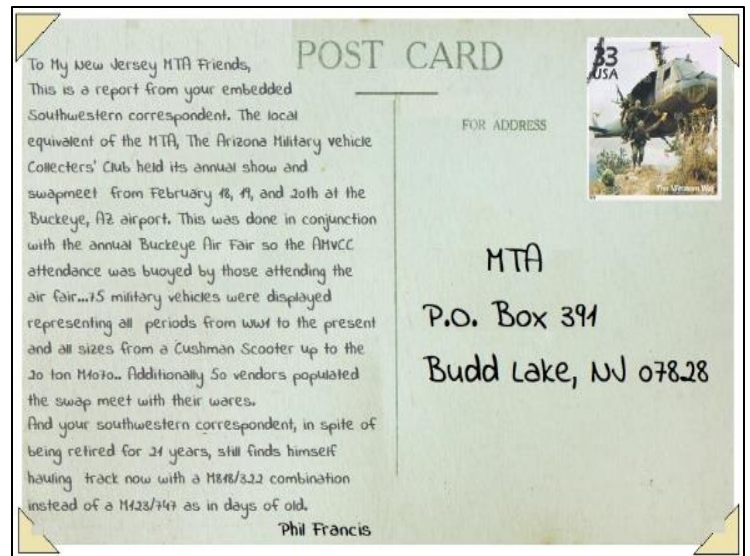 POST CARD
To My New Jersey MTA Friends,
This is a report from your embedded
Southwestern correspondent. The local
equivalent of the MTA, The Arizona Military vehicle
Collecters' Club held its annual show and
swapmeet from February 18, 19, and 20th at the
Buckeye, AZ airport. This was done in conjunction
with the annual Buckeye Air Fair so the AMVCC
attendance was buoyed by those attending the
air fair...75 military vehicles were displayed
representing all periods from WW1 to the present
and all sizes from a Cushman Scooter up to the
20 ton M1070.. Additionally 50 vendors populated
the swap meet with their wares.
And your southwestern correspondent, in spite of
being retired for 21 years, still finds himself
hauling track now with a M818/322 combination
instead of a M123/747 as in days of old.
Phil Francis
FOR ADDRESS
33
USA
The Vietnam War
MTA
P.O. Box 391
Budd Lake, NJ 07828